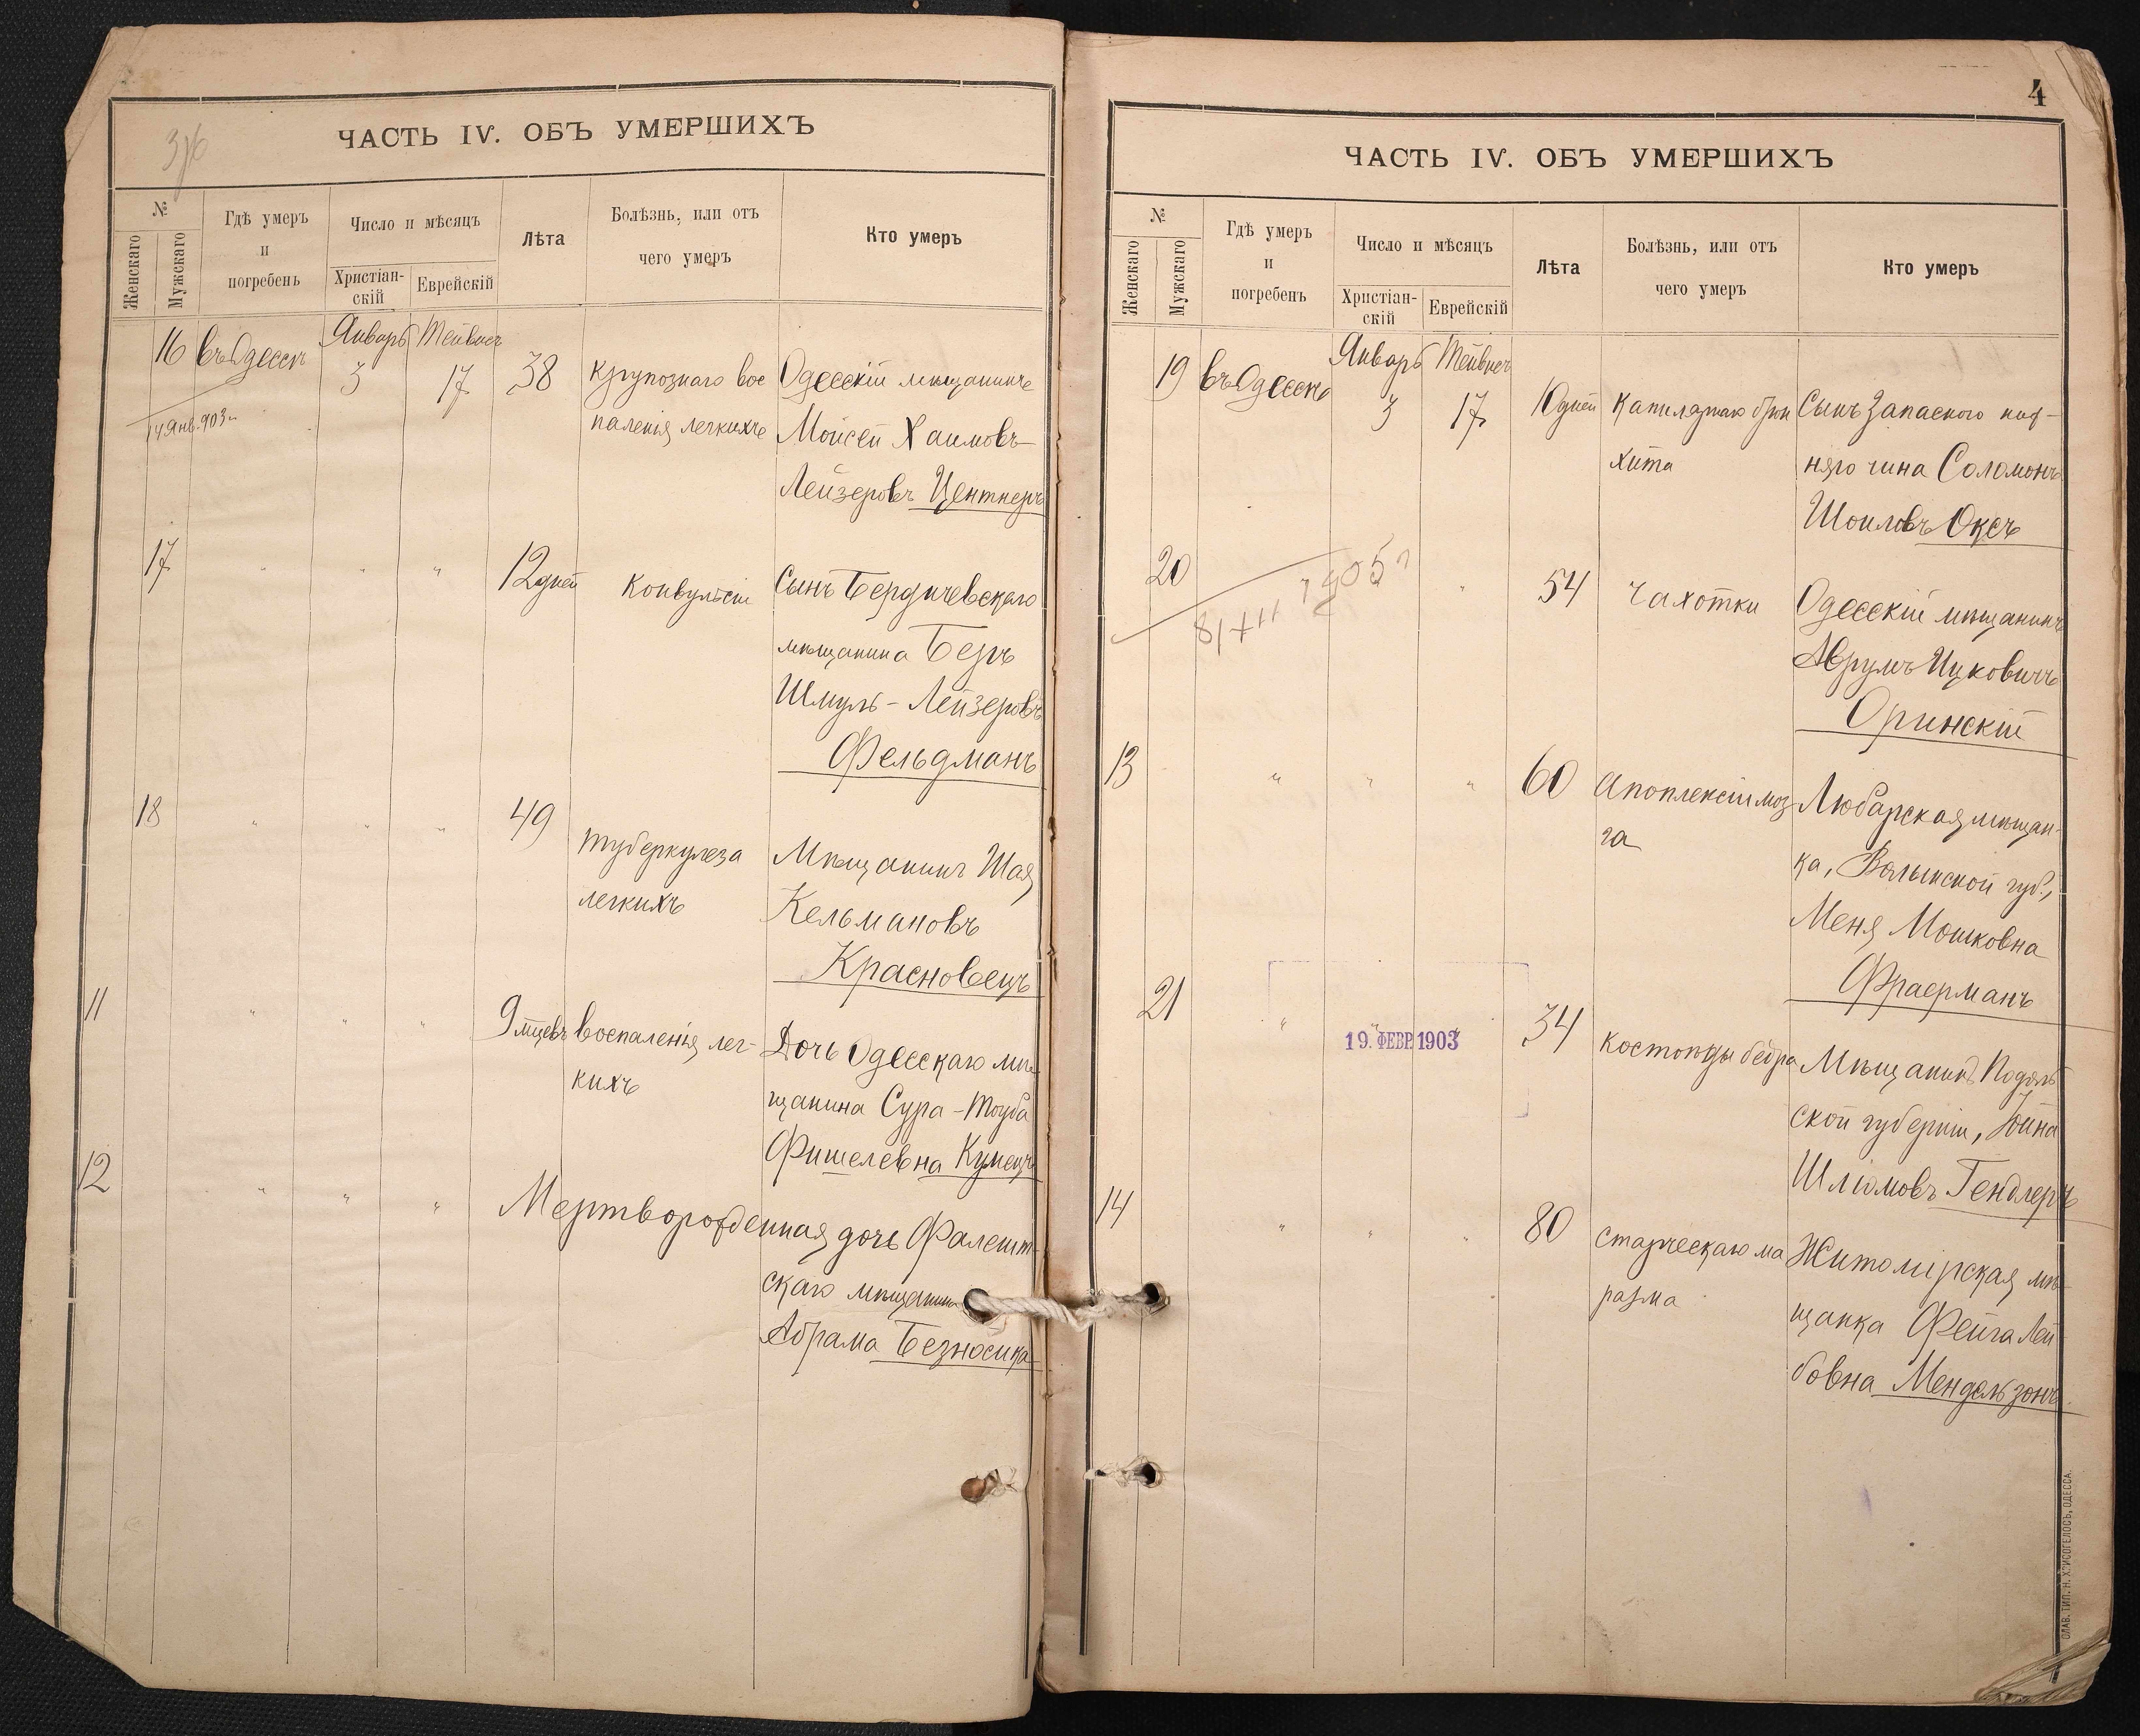 3/6
ЧАСТЬ IV. ОБЪ УМЕРШИХЪ
№
Женскаго
Мужскаго
Гдѣ умеръ
и
погребенъ
Число и мѣсяцъ
Христіан-
скій
Еврейскій
Лѣта
Болѣзнь, или отъ
чего умеръ
Кто умеръ
16 въ Одессѣ Январь Тейвисъ
3 17 38 крупознаго вос Одесскій мѣщанинъ
14 Янв. 903 г. паленія легкихъ Мойсей Хаимовъ-
Лейзеровъ Центнеръ
17 " " " 12 дней Конвульсіи Сынъ Бердичевскаго
мѣщанина Беръ
Шмуль-Лейзеровъ
Фельдманъ
18 " " " 49 туберкулеза Мѣщанинъ Шая
легкихъ Кельмановъ
Красновецъ
11 " " " 9 мцевъ воспаленія лег- Дочь Одесскаго мѣ-
кихъ щанина Сура-Тоуба
Фишелевна Купецъ
12 " " " Мертворожденная дочь Фалешт-
скаго мѣщанина
Абрама Безносика
4
ЧАСТЬ IV. ОБЪ УМЕРШИХЪ
№
Женскаго
Мужскаго
Гдѣ умеръ
и
погребенъ
Число и мѣсяцъ
Христіан-
скій
Еврейскій
Лѣта
Болѣзнь, или отъ
чего умеръ
Кто умеръ
19 въ Одессѣ Январь Тейвисъ
3 17 10 дней Капилярнаго брон Сынъ Запаснаго ниж-
хита няго чина Соломонъ
Шоиловъ Оксъ
20 " 54 Чахотки Одесскій мѣщанинъ
Аврумъ Ицковичъ
Оринскій
13 " " " 60 Апоплексіи моз- Любарская мѣщан-
га ка, Волынской губ.,
Меня Мошковна
Фраерманъ
21 " " " 34 Костоѣды бедра Мѣщанинъ Подоль
19. ФЕВР. 1903
ской губерніи, Іойна
Шлiомовъ Гендлеръ
14 " " " 80 старческаго ма Житомірская мѣ-
разма щанка Фейга Лей
бовна Мендельзонъ
СЛАВ. ТИП. Н. ХРИСОГЕЛОСЪ, ОДЕССА.